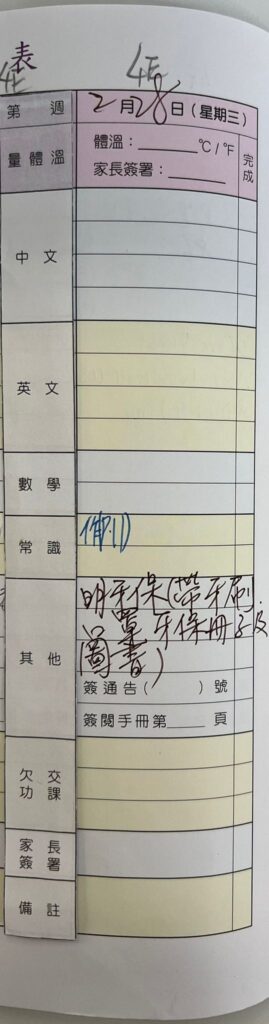 表
4E 4E
第 週 2月28日(星期三)
量體溫 體溫：______°C/°F 完成
家長簽署：______
中文
英文
數學
常識
明牙保(帶牙刷、
罩、牙保冊子及
其他 圖書)
簽通告( )號
簽閱手冊第____頁
欠交功課
家長簽署
備註